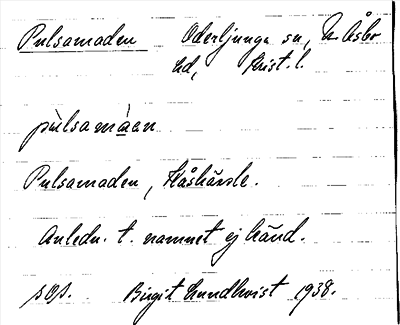 Pulsamaden Oderljunga sn, N. Åsbo
hd, Krist. l.
pùlsamáan
Pulsamaden, Håshärsle.
Anledn. t. namnet ej känd.
sOs. Birgit Lundkvist 1938.